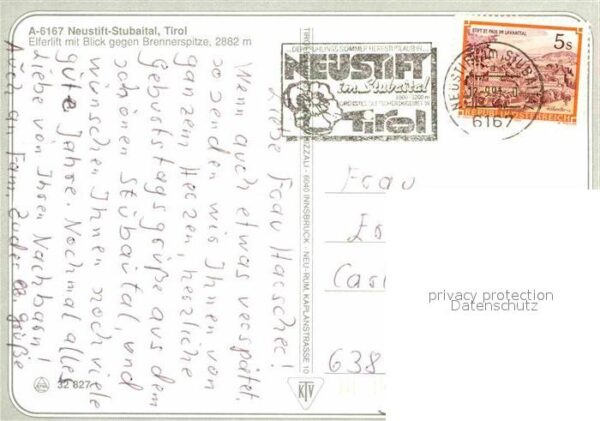 A-6167 Neustift-Stubaital, Tirol
Elferlift mit Blick gegen Brennerspitze, 2882 m
NEUSTIFT
im Stubaital
Tirol
NEUSTIFT IM STUBAITAL
6167
5 S
STIFT ST. PAUL IM LAVANTTAL
REPUBLIK ÖSTERREICH
Liebe Frau
Wenn auch etwas verspätet,
so senden wir Ihnen von
ganzem Herzen, herzliche
Gebutstagsgrüße aus dem
schönen Stubaital, und
wünschen Ihnen noch viele
gute Jahre. Nochmal alles
liebe von Ihren Nachbarn!
Auch an Fam. grüße
Frau
638
privacy protection
Datenschutz
6040 INNSBRUCK - NEU-RUM, KAPLANSTRASSE 10
KTV
32 827